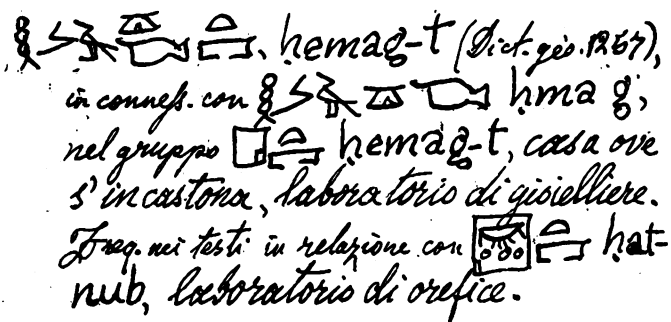 ḥemag-t (Dict. géo. 1257),
in conness. con ḥmag,
nel gruppo ḥemag-t, casa ove
s'incastona, laboratorio di gioielliere.
Freq. nei testi in relazione con ḥat-
nub, laboratorio di orefice.